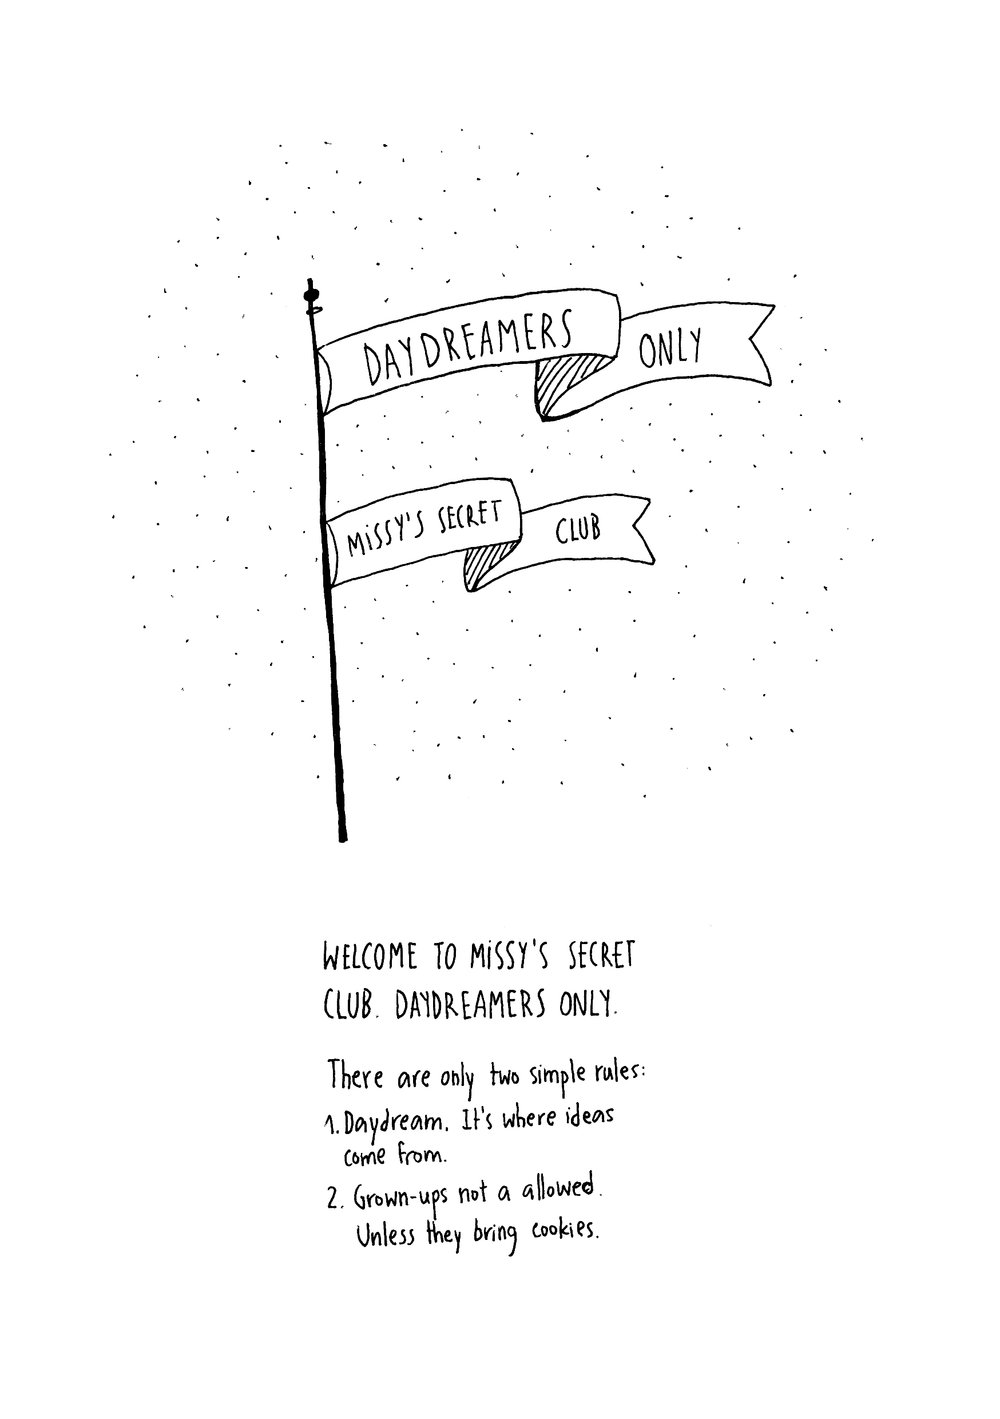 DAYDREAMERS ONLY
MiSSY'S SECRET CLUB
WELCOME TO MiSSY'S SECRET
CLUB. DAYDREAMERS ONLY.
There are only two simple rules:
1. Daydream. It's where ideas
come from.
2. Grown-ups not a allowed.
Unless they bring cookies.